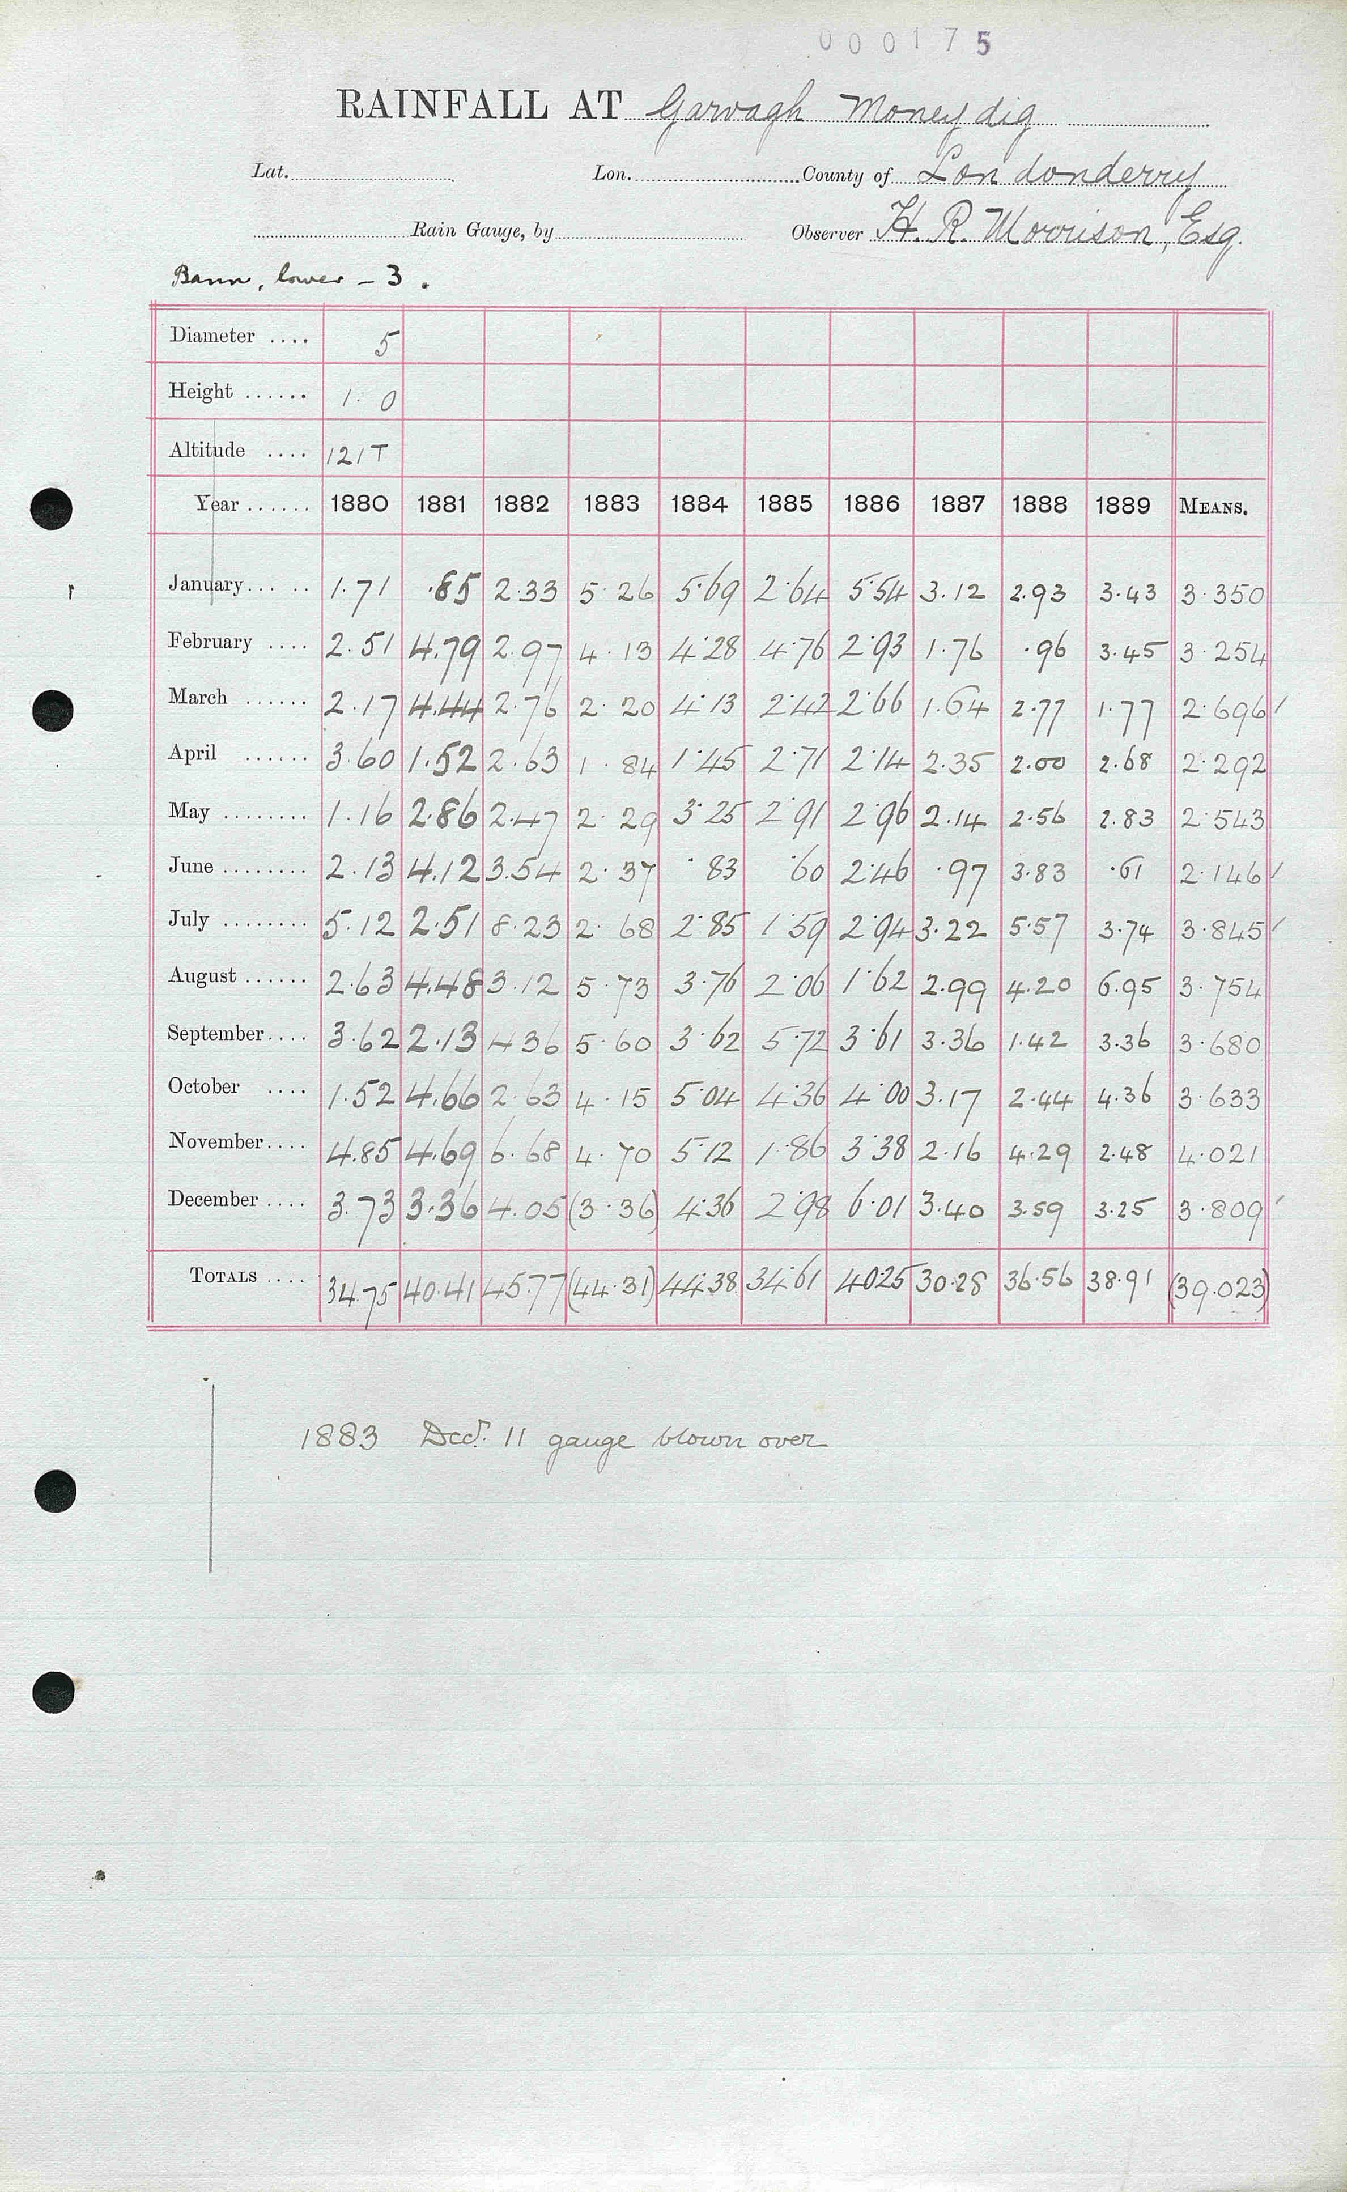 000175
RAINFALL AT Garvagh Moneydig
Lat. Lon. County of Londonderry
Rain Gauge, by Observer H. R. Morrison, Esq.
Bann, lower - 3.
Diameter .... 5
Height ...... 1· 0
Altitude .... 121T
Year ...... 1880 1881 1882 1883 1884 1885 1886 1887 1888 1889 MEANS.
January ..... 1.71 .85 2.33 5.26 5.69 2.64 5.54 3.12 2.93 3.43 3.350
February .... 2.51 4.79 2.97 4.13 4.28 4.76 2.93 1.76 .96 3.45 3.254
March ...... 2.17 4.44 2.76 2.20 4.13 2.42 2.66 1.64 2.77 1.77 2.696
April ...... 3.60 1.52 2.63 1.84 1.45 2.71 2.14 2.35 2.00 2.68 2.292
May ........ 1.16 2.86 2.47 2.29 3.25 2.91 2.96 2.14 2.56 2.83 2.543
June ........ 2.13 4.12 3.54 2.37 .83 .60 2.46 .97 3.83 .61 2.146
July ........ 5.12 2.51 8.23 2.68 2.85 1.59 2.94 3.22 5.57 3.74 3.845
August ...... 2.63 4.48 3.12 5.73 3.76 2.06 1.62 2.99 4.20 6.95 3.754
September .... 3.62 2.13 4.36 5.60 3.62 5.72 3.61 3.36 1.42 3.36 3.680
October .... 1.52 4.66 2.63 4.15 5.04 4.36 4.00 3.17 2.44 4.36 3.633
November .... 4.85 4.69 6.68 4.70 5.12 1.86 3.38 2.16 4.29 2.48 4.021
December .... 3.73 3.36 4.05 (3.36) 4.36 2.98 6.01 3.40 3.59 3.25 3.809
TOTALS .... 34.75 40.41 45.77 (44.31) 44.38 34.61 40.25 30.28 36.56 38.91 (39.023)
1883 Decr. 11 gauge blown over